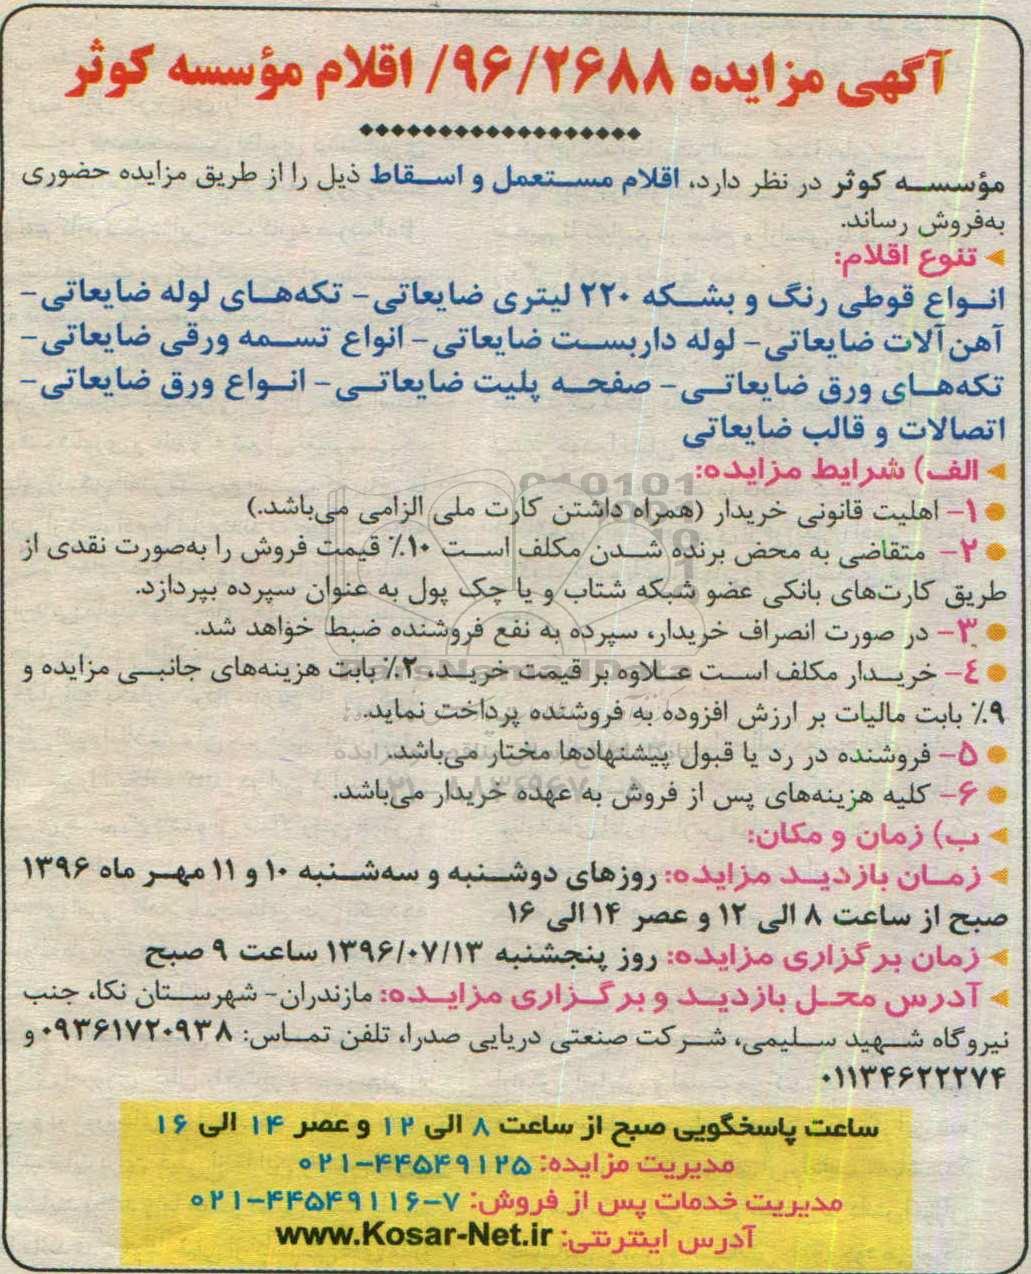 آگهی مزایده ۹۶/۲۶۸۸/ اقلام مؤسسه کوثر
مؤسسه کوثر در نظر دارد، اقلام مستعمل و اسقاط ذیل را از طریق مزایده حضوری
به‌فروش رساند.
تنوع اقلام:
انواع قوطی رنگ و بشکه ۲۲۰ لیتری ضایعاتی- تکه‌های لوله ضایعاتی-
آهن آلات ضایعاتی- لوله داربست ضایعاتی- انواع تسمه ورقی ضایعاتی-
تکه‌های ورق ضایعاتی- صفحه پلیت ضایعاتی- انواع ورق ضایعاتی-
اتصالات و قالب ضایعاتی
الف) شرایط مزایده:
۱- اهلیت قانونی خریدار (همراه داشتن کارت ملی الزامی می‌باشد.)
۲- متقاضی به محض برنده شدن مکلف است ۱۰٪ قیمت فروش را به‌صورت نقدی از
طریق کارت‌های بانکی عضو شبکه شتاب و یا چک پول به عنوان سپرده بپردازد.
۳- در صورت انصراف خریدار، سپرده به نفع فروشنده ضبط خواهد شد.
۴- خریدار مکلف است علاوه بر قیمت خرید، ۲٪ بابت هزینه‌های جانبی مزایده و
۹٪ بابت مالیات بر ارزش افزوده به فروشنده پرداخت نماید.
۵- فروشنده در رد یا قبول پیشنهادها مختار می‌باشد.
۶- کلیه هزینه‌های پس از فروش به عهده خریدار می‌باشد.
ب) زمان و مکان:
زمان بازدید مزایده: روزهای دوشنبه و سه‌شنبه ۱۰ و ۱۱ مهر ماه ۱۳۹۶
صبح از ساعت ۸ الی ۱۲ و عصر ۱۴ الی ۱۶
زمان برگزاری مزایده: روز پنجشنبه ۱۳۹۶/۰۷/۱۳ ساعت ۹ صبح
آدرس محل بازدید و برگزاری مزایده: مازندران- شهرستان نکا، جنب
نیروگاه شهید سلیمی، شرکت صنعتی دریایی صدرا، تلفن تماس: ۰۹۳۶۱۷۲۰۹۳۸ و
۰۱۱۳۴۶۲۲۲۷۴
ساعت پاسخگویی صبح از ساعت ۸ الی ۱۲ و عصر ۱۴ الی ۱۶
مدیریت مزایده: ۰۲۱-۴۴۵۴۹۱۲۵
مدیریت خدمات پس از فروش: ۷-۰۲۱-۴۴۵۴۹۱۱۶
آدرس اینترنتی: www.Kosar-Net.ir